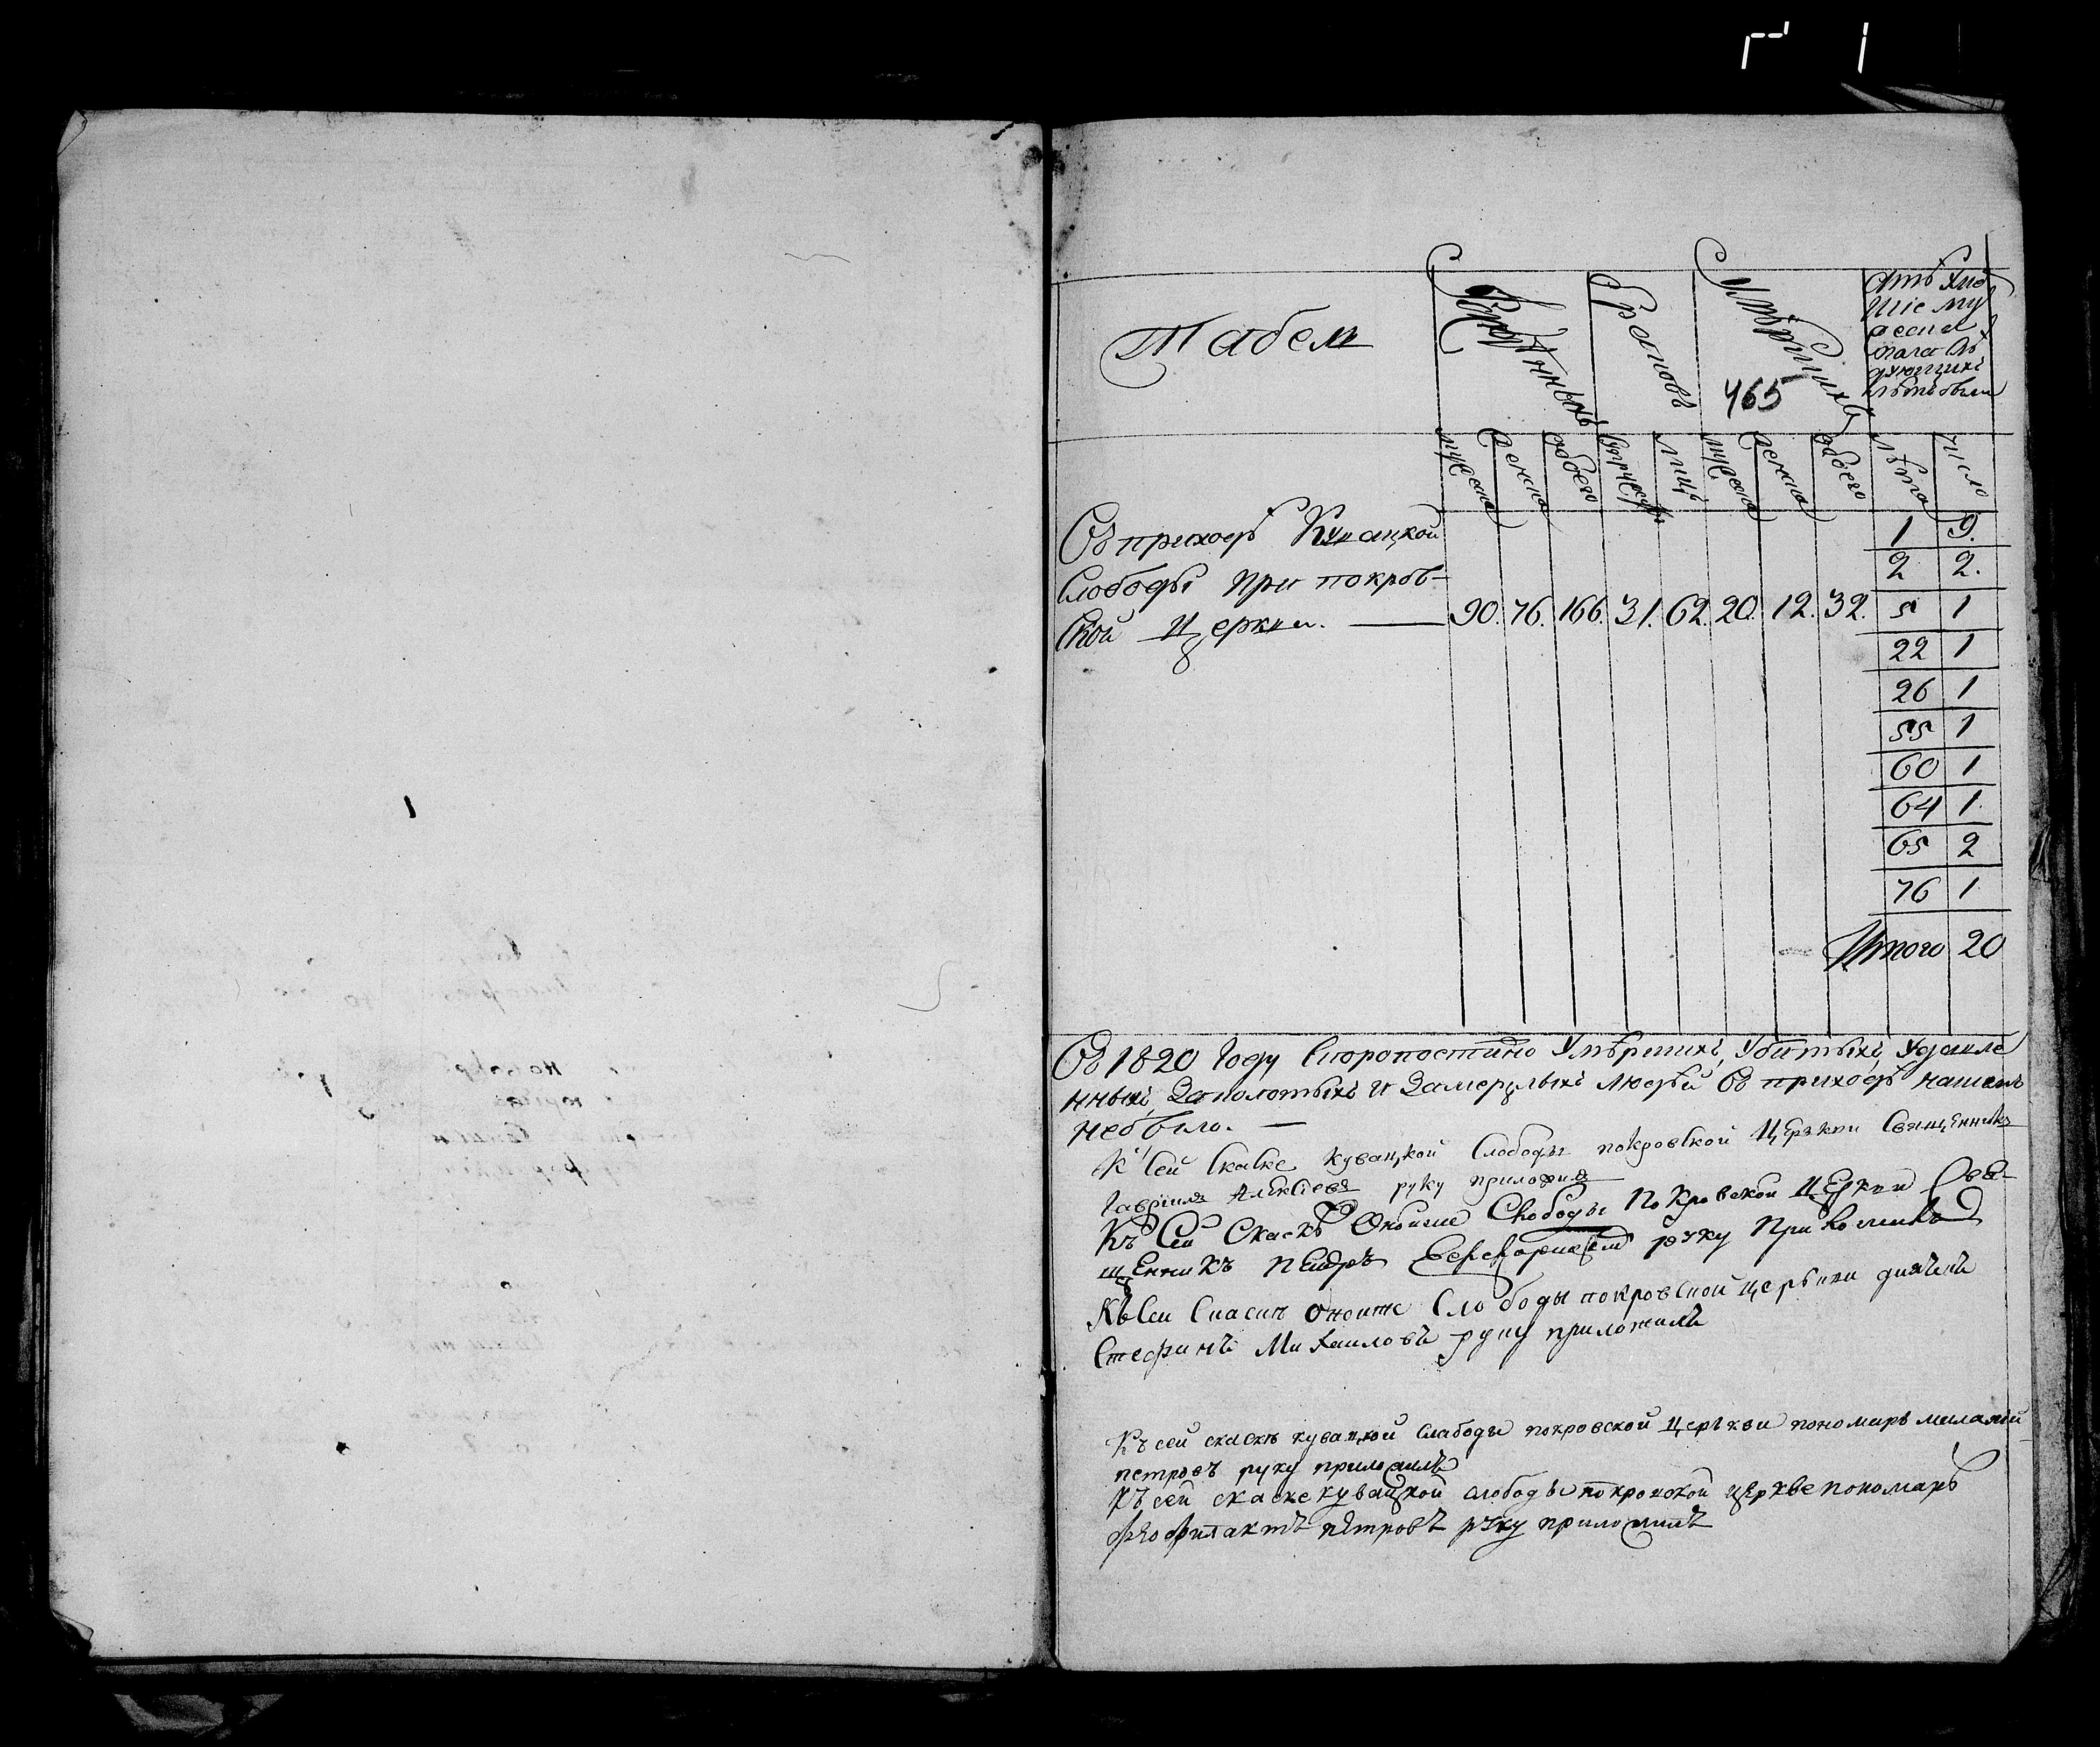 Табель
Рожденныхъ
Браковъ
Умѣршихъ
465
Лѣта
число
мужеска
женска
обоего
лицъ
мужеска
женска
обоего
Въ приходѣ Кувацкой
Слободы При покров-
ской Церкви. 90. 76. 166. 31. 62. 20. 12. 32.
1 9.
2 2.
5 1
22 1
26 1
55 1
60 1
64 1
65 2
76 1
Итого 20
Въ 1820 Году Скоропостижно Умѣршихъ, Убитыхъ, Удавле
нныхъ, Заколотыхъ и Замерзлыхъ людей Въ приходѣ нашемъ
небыло.
К Сей Скаске Кувацкой Слободы покровской Церькви Священникъ
Гавріилъ Алексіевъ руку приложилъ
Къ Сей Скаскѣ Оной же Слободы Покровской Церкви Свя-
щенникъ Петръ руку Приложилъ
Къ Сеи Скаски оноиже Слободы покровской церькви диячекъ
Стефанъ Михаиловъ руку приложилъ
Къ сей скаске кувацкой слабоды покровской Церькви пономарь
петровъ руку приложилъ
Къ сей скаске кувацкой слободы покровской церкве пономарь
феофилактъ петровъ руку приложилъ